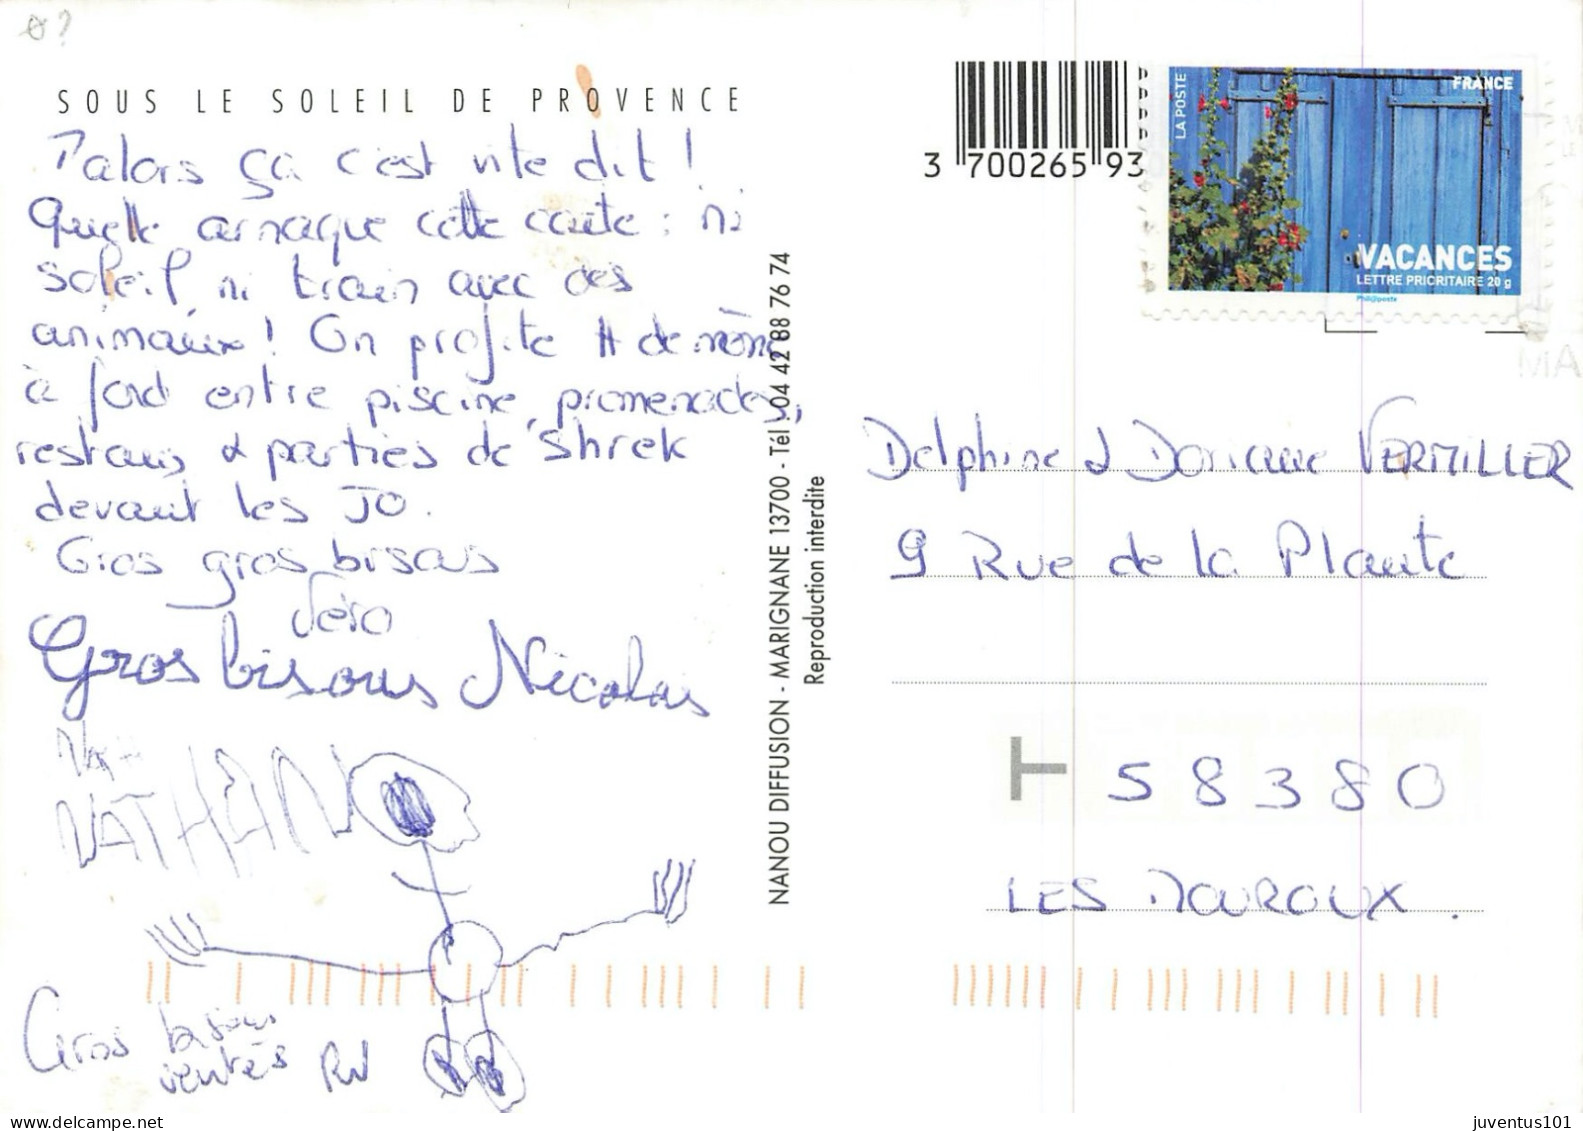 SOUS LE SOLEIL DE PROVENCE
Palors ça c'est vite dit !
Quelle arnaque cette carte : ni
soleil ni train avec des
animaux ! On profite # de même
à fond entre piscine, promenades,
restaus & parties de Shrek
devant les JO.
Gros gros bisous
Véro
Gros bisous Nicolas
NATHAN
Gros bisous
ventés
NANOU DIFFUSION - MARIGNANE 13700 - Tél : 04 42 88 76 74
Reproduction interdite
3 700265 93
LA POSTE
FRANCE
VACANCES
LETTRE PRIORITAIRE 20 g
Phil@poste
MA
Delphine & Doriane VERMILLER
9 Rue de la Plante
58380
LES MOUROUX.
juventus101